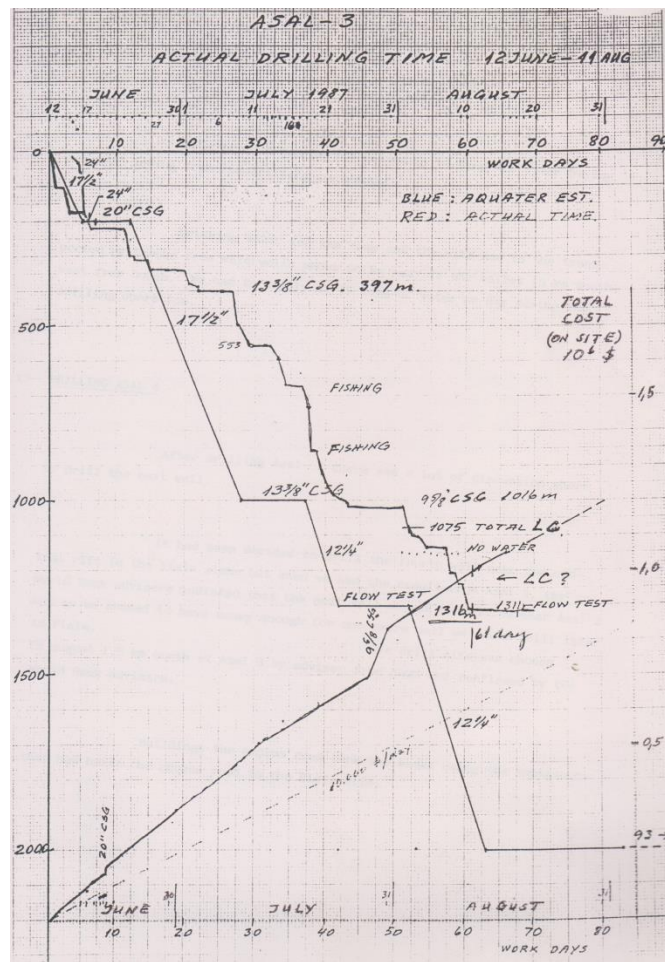 ASAL-3
ACTUAL DRILLING TIME 12 JUNE - 11 AUG
JUNE JULY 1987 AUGUST
12 17 30 11 21 31 10 20 31
27 6 16
0 10 20 30 40 50 60 70 80 90
WORK DAYS
24"
17 1/2"
24"
20" CSG
BLUE : AQUATER EST.
RED : ACTUAL TIME.
13 3/8" CSG. 397 m.
17 1/2"
TOTAL
COST
(ON SITE)
10⁶ $
500
553
1,5
FISHING
FISHING
1000
13 3/8" CSG
9 5/8" CSG 1016 m
1075 TOTAL LC
12 1/4"
NO WATER
1,0
← LC ?
FLOW TEST
1316 m
1311 FLOW TEST
61 day
9 5/8 CSG
1500
12 1/4"
0,5
10.000 $/day
20" CSG
2000
93
30 31 31
JUNE JULY AUGUST
0 10 20 30 40 50 60 70 80 90
WORK DAYS